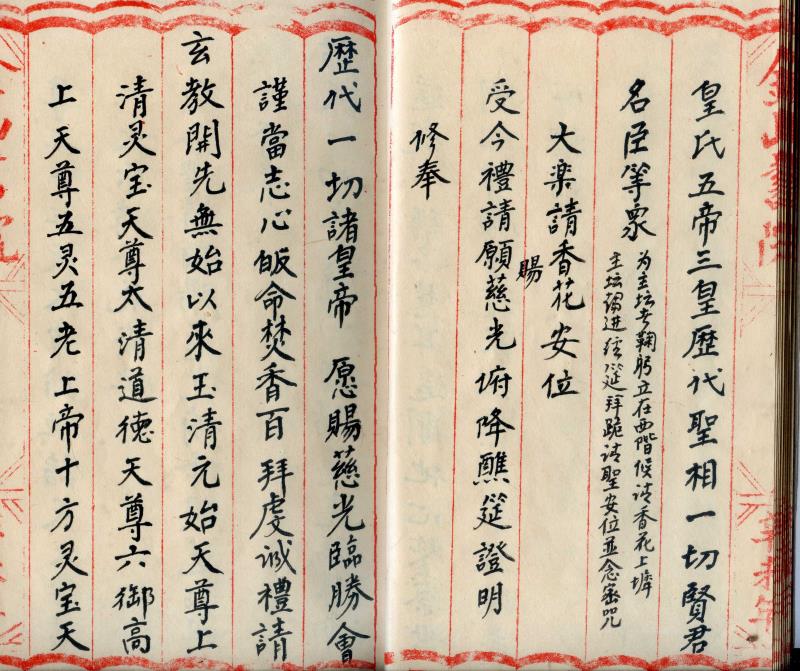 皇氏五帝三皇歷代聖相一切賢君
名臣等眾
为主坛者鞠躬立在西階候请香花上壇
主坛进筵拜跪请聖安位並念密咒
大楽請香花安位
賜
受今禮請願慈光俯降醮筵證明
修奉
歷代一切諸皇帝 愿賜慈光臨勝會
謹當志心皈命焚香百拜虔诚禮請
玄教開先無始以來玉清元始天尊上
清灵宝天尊太清道德天尊六御高
上天尊五灵五老上帝十方灵宝天